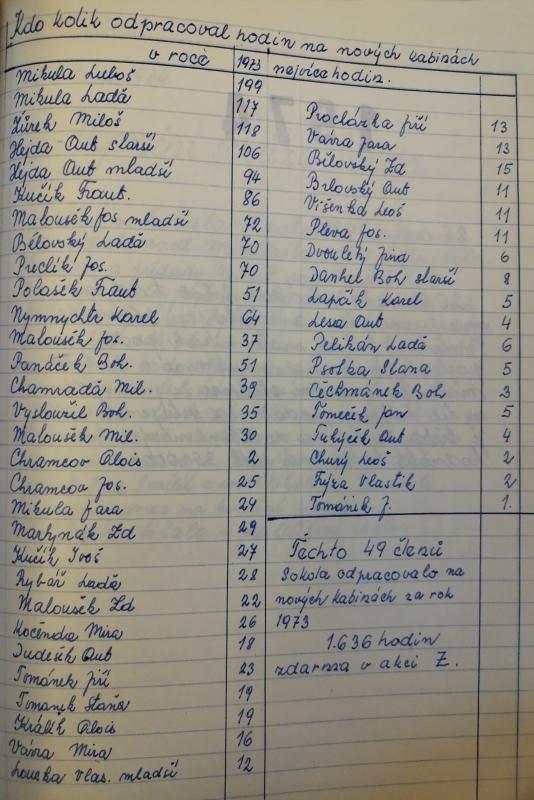 Kdo kolik odpracoval hodin na nových kabinách
v roce 1973 nejvíce hodin.
Mikula Luboš 199
Mikula Laďa 117
Žůrek Miloš 118
Hejda Ant starší 106
Hejda Ant mladší 94
Kučík Frant. 86
Maloušek Jos mladší 72
Bělovský Laďa 70
Preclík Jos. 70
Polašek Frant 51
Nymnychtr Karel 64
Maloušek Jos. 37
Panáček Boh. 51
Chamradá Mil. 39
Vysloužil Boh. 35
Maloušek Mil. 30
Chramcov Alois 2
Chramcov Jos. 25
Mikula Jara 24
Martynák Zd 29
Kučík Ivoš 27
Rybář Laďa 28
Maloušek Zd 22
Kocenda Mira 26
Ant 18
Tománek Jiří 23
Tomanek Staňa 19
Králik Alois 19
Vávra Mira 16
Vlas. mladší 12
Procházka Jiří 13
Vávra Jara 13
Bělovský Zd 15
Ant 11
Višenka Leoš 11
Pleva Jos. 11
Dvouletý Jira 6
Daněk Boh starší 8
Lapák Karel 5
Lesa Ant 4
Pelikán Laďa 6
Psotka Slana 5
Čechmánek Boh 3
Tomeček Jan 5
Ant 4
Churý Leoš 2
Fujza Vlastik 2
Tománek J. 1.
Těchto 49 členů
Sokola odpracovalo na
nových kabinách za rok
1973
1.636 hodin
zdarma v akci Z.